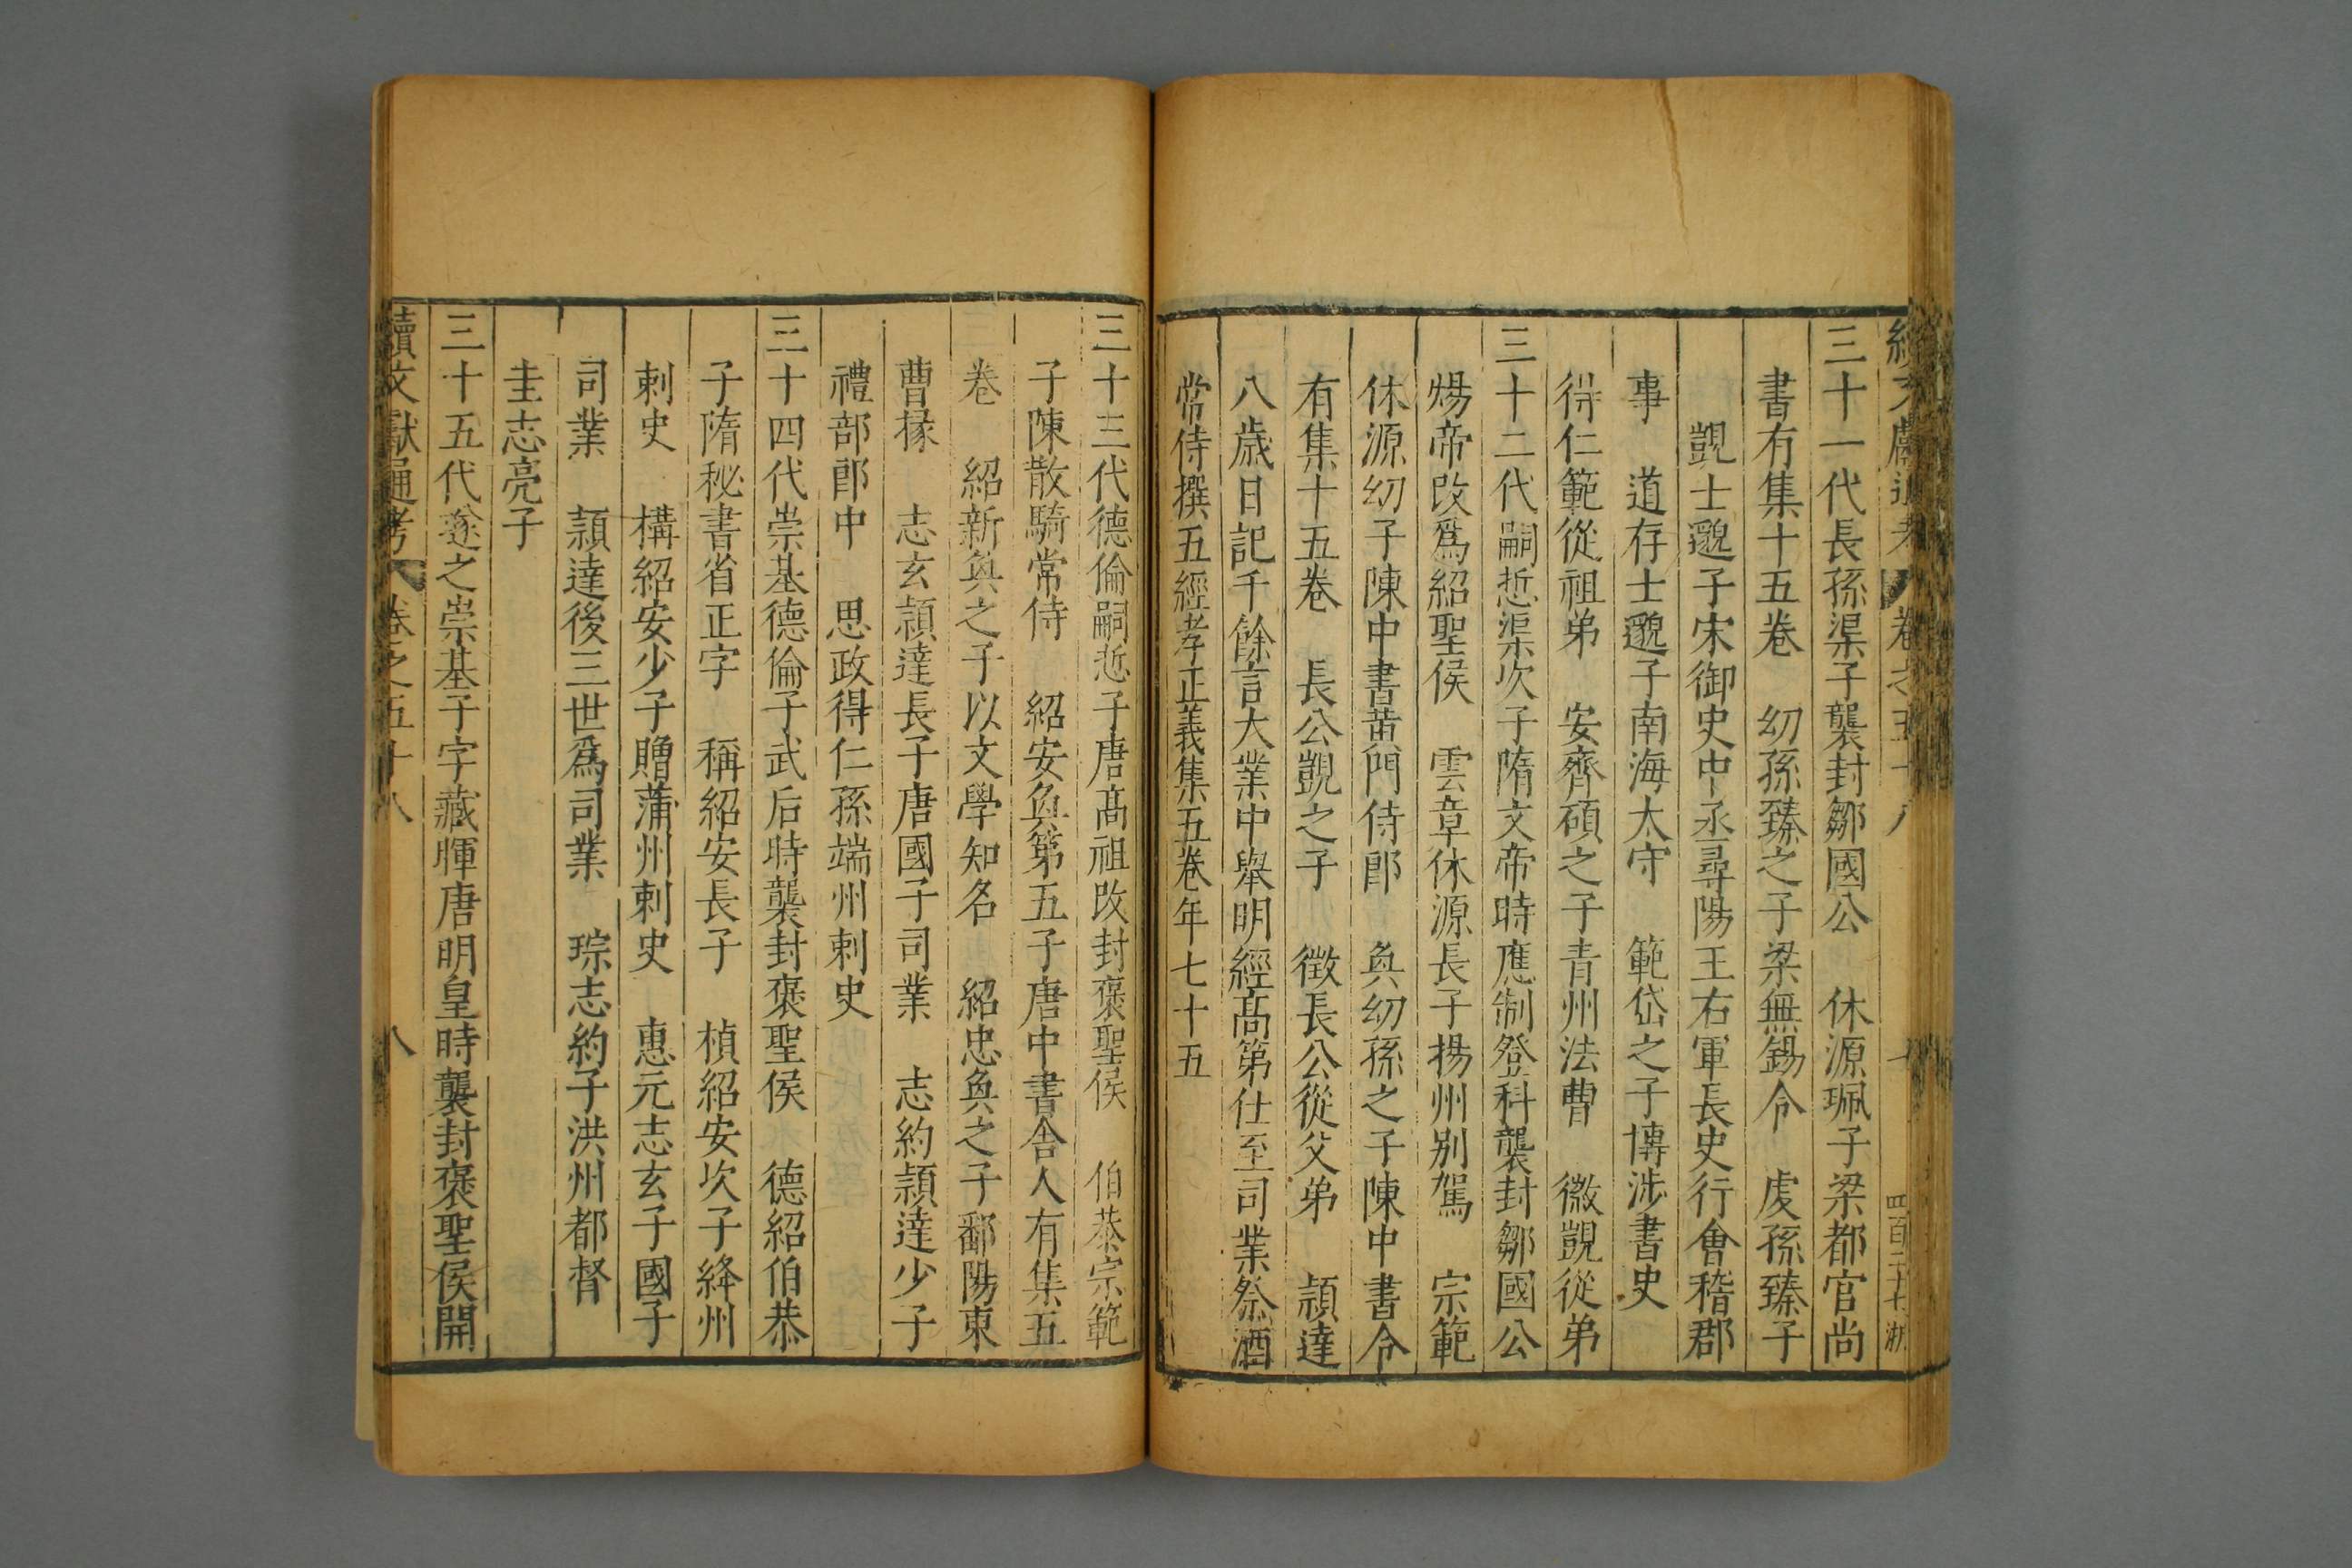 續文獻通考 卷之五十八 四百二十七 浙
三十一代長孫渠子襲封鄒國公 休源珮子梁都官尚
書有集十五卷 幼孫臻之子梁無錫令 虔孫臻子
覬士邈子宋御史中丞尋陽王右軍長史行會稽郡
事 道存士邈子南海太守 範岱之子博涉書史
得仁範從祖弟 安齊碩之子青州法曹 微覬從弟
三十二代嗣悊渠次子隋文帝時應制登科襲封鄒國公
煬帝改爲紹聖侯 雲章休源長子揚州别駕 宗範
休源幼子陳中書黄門侍郎 奐幼孫之子陳中書令
有集十五卷 長公覬之子 徵長公從父弟 頴達
八歲日記千餘言大業中舉明經高第仕至司業祭酒
常侍撰五經孝正義集五卷年七十五
三十三代德倫嗣悊子唐高祖改封褒聖侯 伯恭宗範
子陳散騎常侍 紹安奐第五子唐中書舍人有集五
卷 紹新奐之子以文學知名 紹忠奐之子鄱陽東
曹掾 志玄頴達長子唐國子司業 志約頴達少子
禮部郎中 思政得仁孫端州刺史
三十四代崇基德倫子武后時襲封褒聖侯 德紹伯恭
子隋秘書省正字 稱紹安長子 楨紹安次子絳州
刺史 構紹安少子贈蒲州刺史 惠元志玄子國子
司業 頴達後三世爲司業 琮志約子洪州都督
圭志亮子
三十五代璲之崇基子字藏暉唐明皇時襲封褒聖侯開
續文獻通考 卷之五十八 八